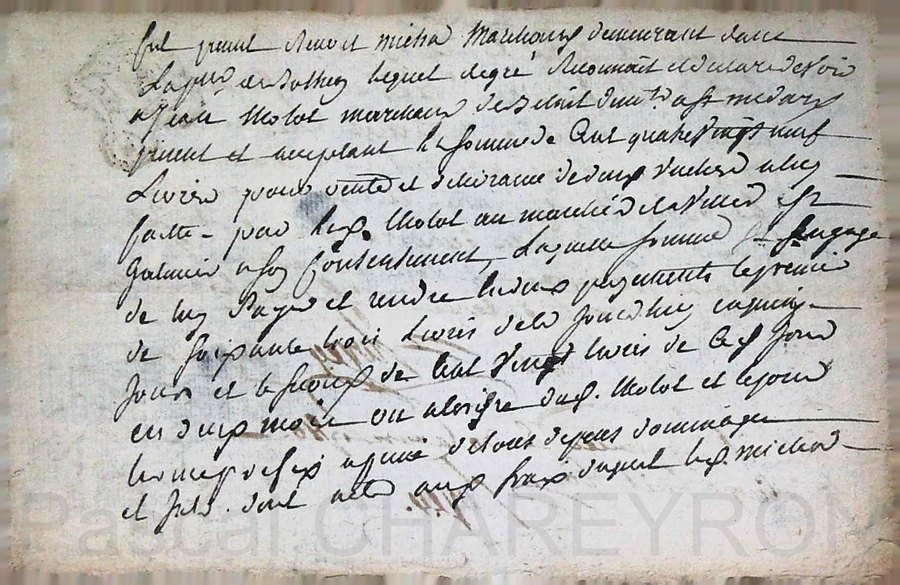 fut présent Benoit micha Marchand demeurant dans
La p.sse de Botheon lequel de gré Reconnait et déclare devoir
a Jean Molot marchand de St médard
présent et acceptant la somme de Cent quatre vingt neuf
Livres pour vente et délivrance de deux vaches a luy
faitte par led. Molot au marché de la ville de St
Galmier a son Contentement, Laquelle somme il s'engage
de luy Payer et rendre en deux payements le premier
de soixante trois Livres de ce Jourd'huy en quinze
Jours et le second de Cent Vingt Livres de Ce Jour
en deux mois ou a loisir dud. Molot et le jour
a peine de tous depens dommages
et Jnts. dont acte aux frais duquel led. micha
Pascal CHAREYRON